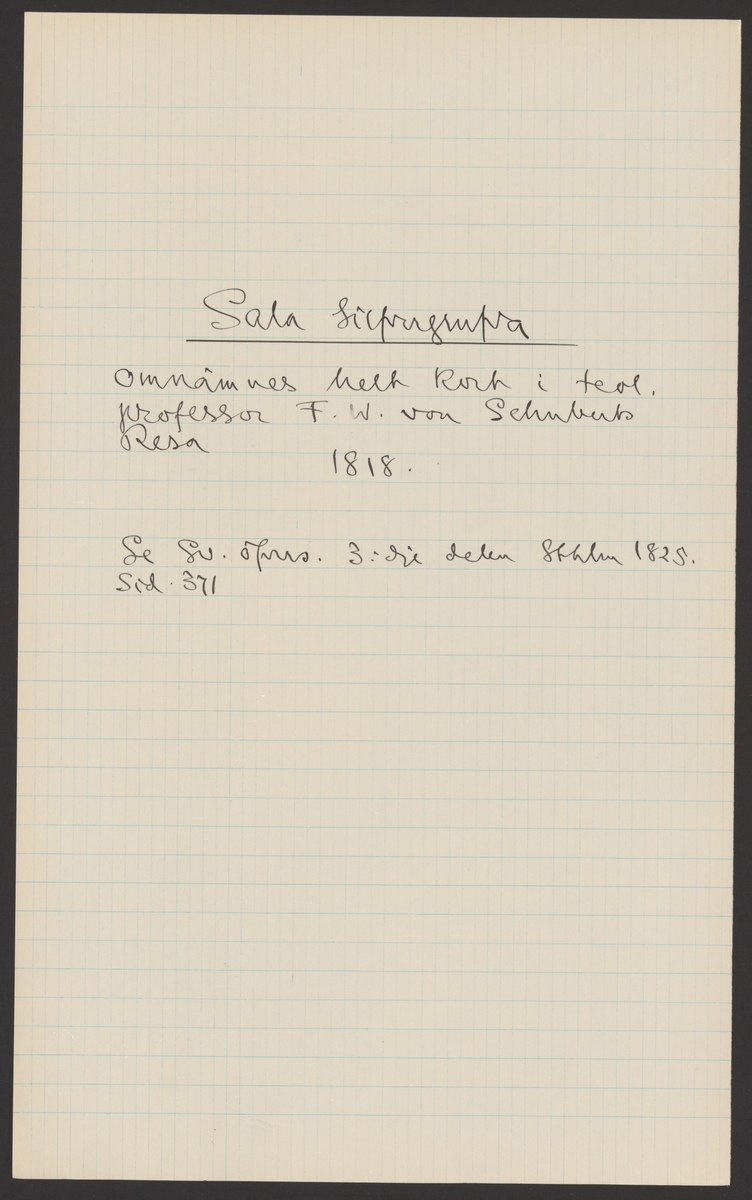 Sala Silfvergrufva
omnämnes helt kort i teol.
professor F. W. von Schuberts
Resa
1818.
Se Sv. öfvers. 3:dje delen Sthlm 1825.
Sid. 371